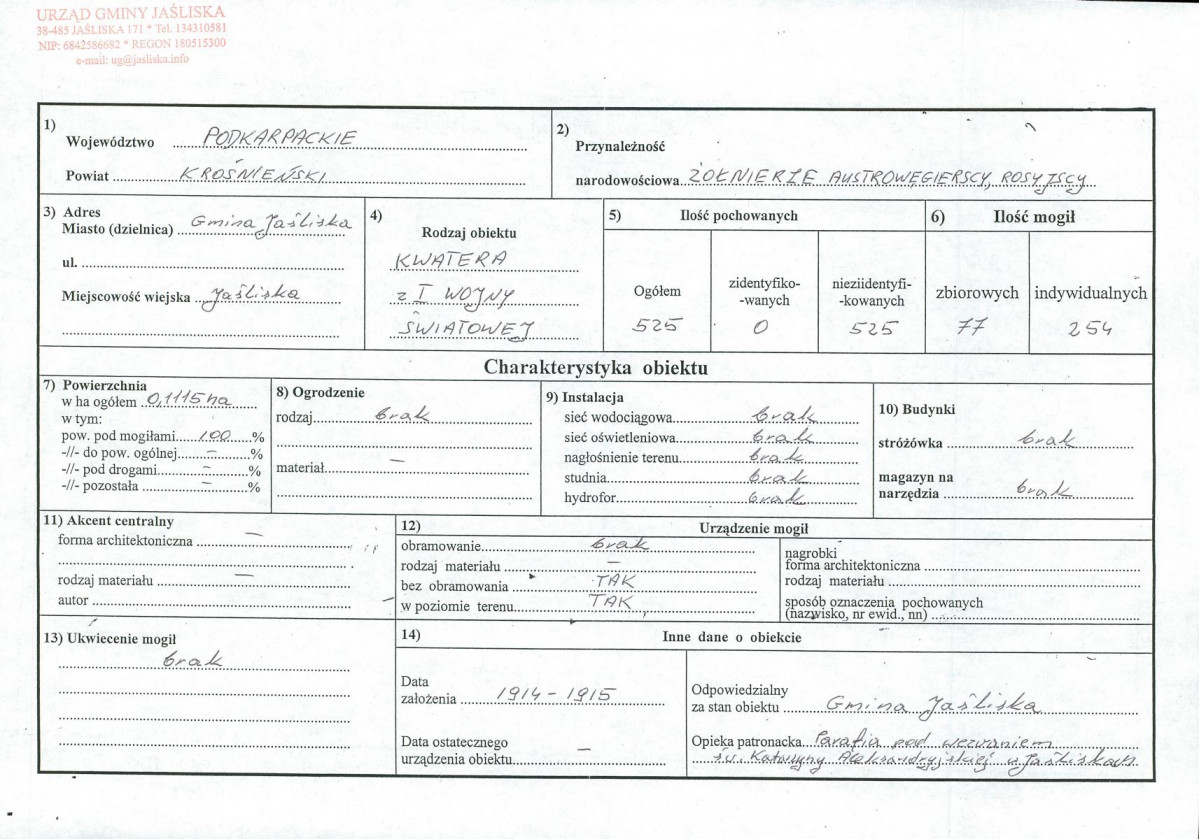 URZĄD GMINY JAŚLISKA
38-485 JAŚLISKA 171 * Tel. 134310581
NIP: 6842586682 * REGON 180515300
e-mail: ug@jasliska.info
1)
Województwo PODKARPACKIE
Powiat KROŚNIEŃSKI
2)
Przynależność
narodowościowa ŻOŁNIERZE AUSTROWĘGIERSCY, ROSYJSCY
3) Adres
Miasto (dzielnica) Gmina Jaśliska
ul.
Miejscowość wiejska Jaśliska
4)
Rodzaj obiektu
KWATERA
z I WOJNY
ŚWIATOWEJ
5) Ilość pochowanych
Ogółem
525
zidentyfiko-
-wanych
0
nieziidentyfi-
-kowanych
525
6) Ilość mogił
zbiorowych
77
indywidualnych
254
Charakterystyka obiektu
7) Powierzchnia
w ha ogółem 0,1115 ha
w tym:
pow. pod mogiłami 100 %
-//- do pow. ogólnej – %
-//- pod drogami – %
-//- pozostała – %
8) Ogrodzenie
rodzaj brak
materiał –
9) Instalacja
sieć wodociągowa brak
sieć oświetleniowa brak
nagłośnienie terenu brak
studnia brak
hydrofor brak
10) Budynki
stróżówka brak
magazyn na
narzędzia brak
11) Akcent centralny
forma architektoniczna –
rodzaj materiału –
autor
12) Urządzenie mogił
obramowanie brak
rodzaj materiału –
bez obramowania TAK
w poziomie terenu TAK
nagrobki
forma architektoniczna
rodzaj materiału
sposób oznaczenia pochowanych
(nazwisko, nr ewid., nn)
13) Ukwiecenie mogił
brak
14) Inne dane o obiekcie
Data
założenia 1914 - 1915
Data ostatecznego
urządzenia obiektu –
Odpowiedzialny
za stan obiektu Gmina Jaśliska
Opieka patronacka Parafia pod wezwaniem
św. Katarzyny Aleksandryjskiej w Jaśliskach